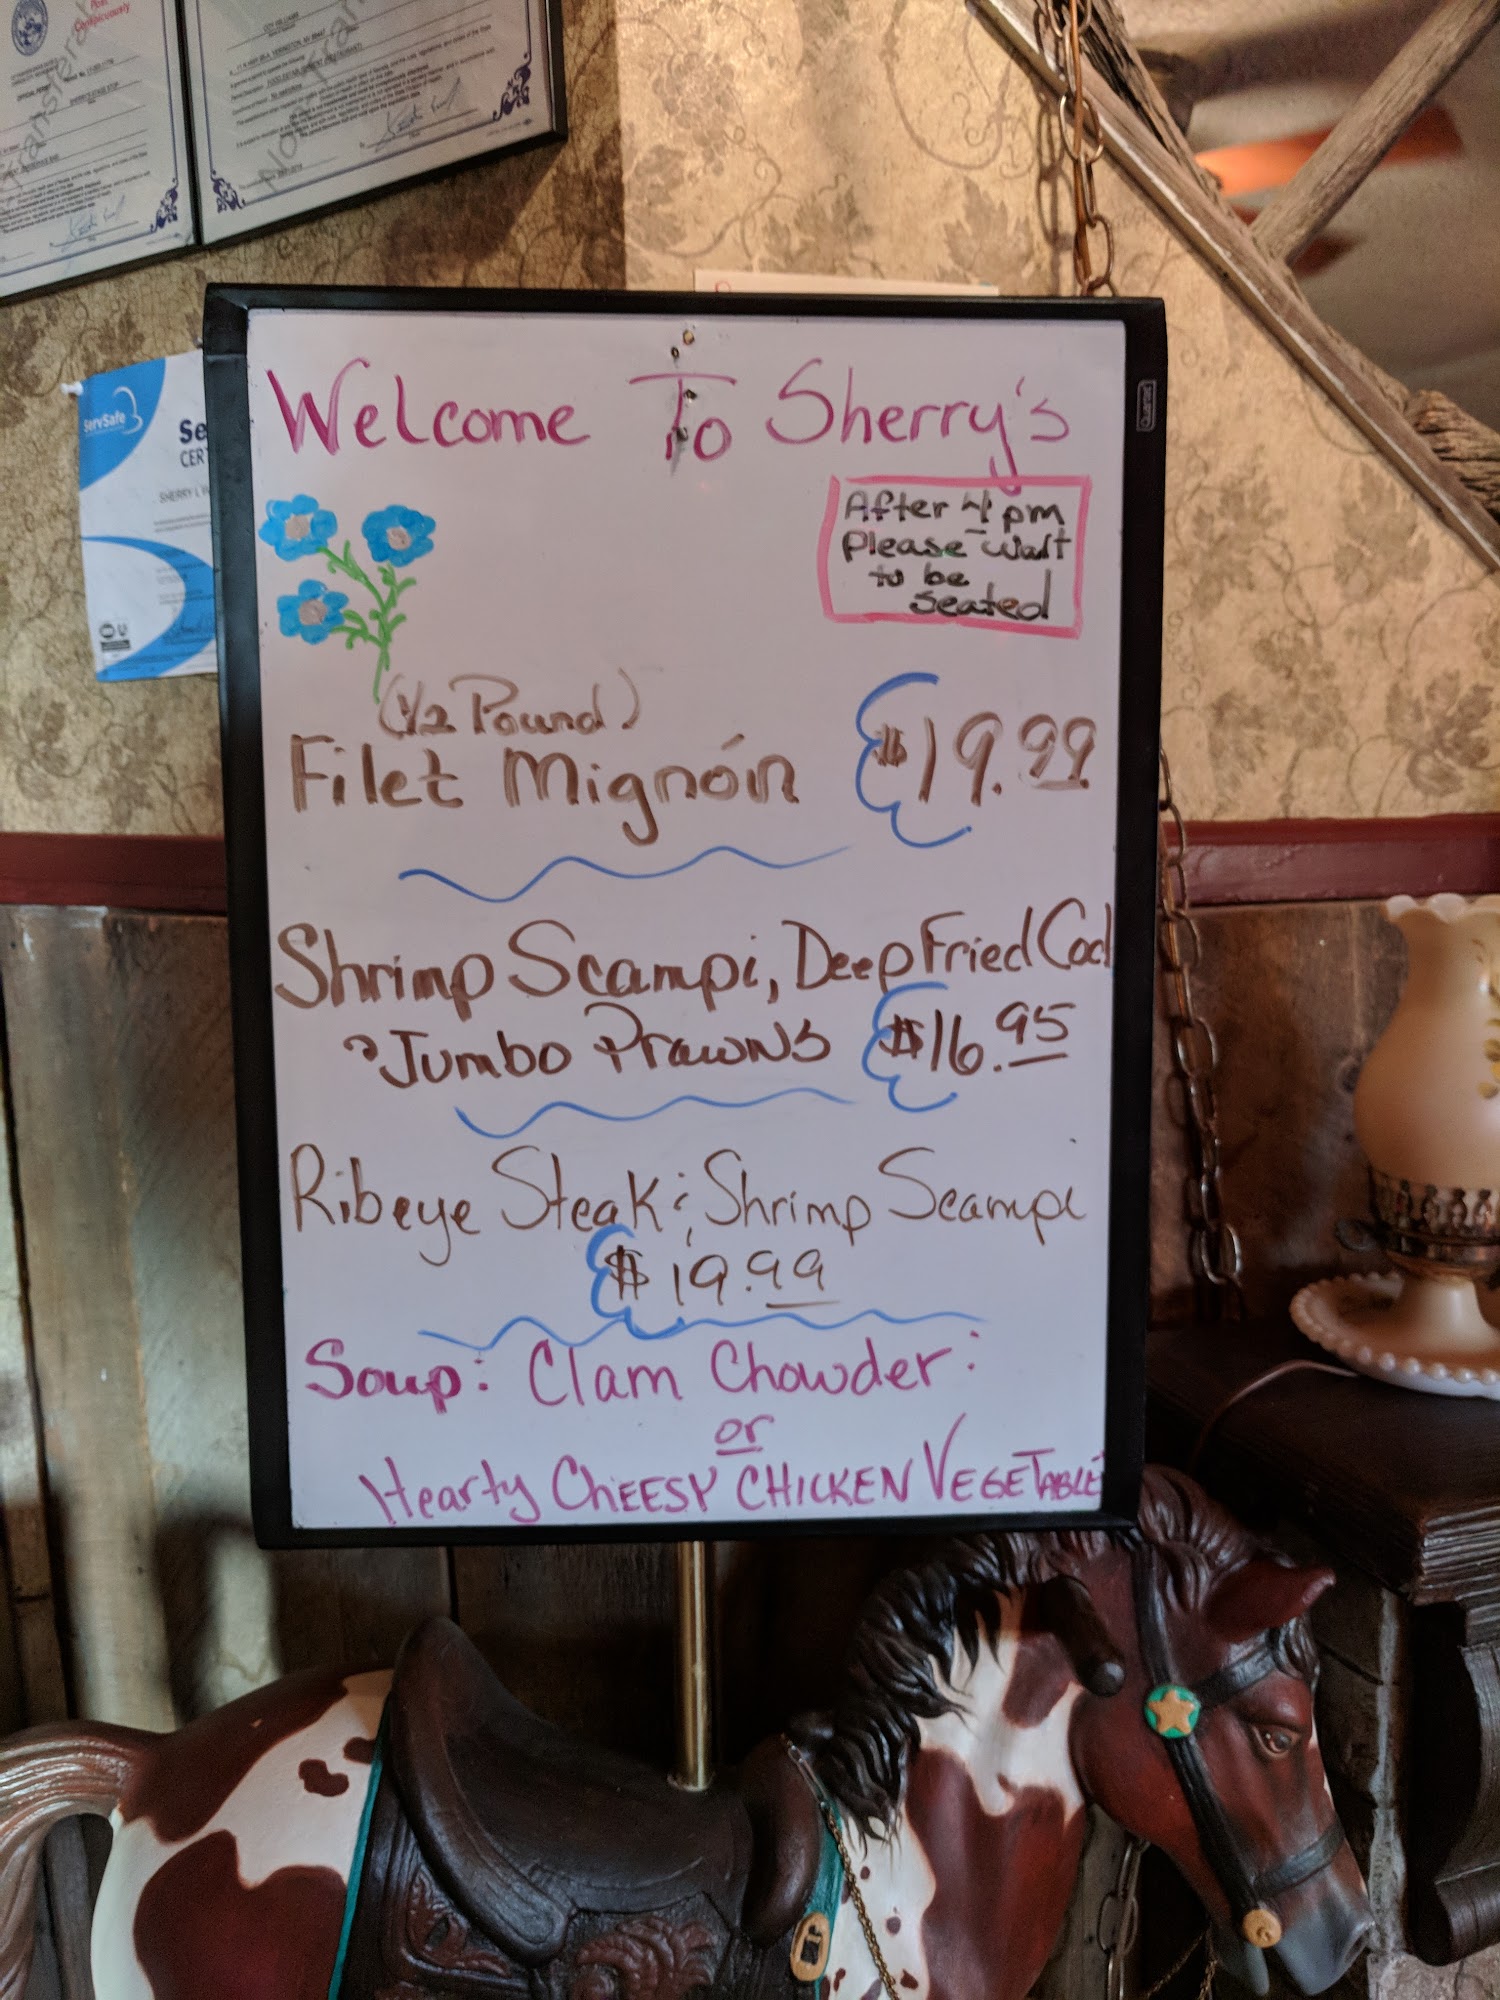 Conspicuously
Not Transferable
SHERRY'S STAGE STOP
FOOD ESTABLISHMENT (RESTAURANT)
ServSafe
CERT
QUARTET
Welcome To Sherry's
After 4 pm
Please wait
to be
seated
(1/2 Pound)
Filet Mignón $19.99
Shrimp Scampi, Deep Fried Cod
& Jumbo Prawns $16.95
Ribeye Steak & Shrimp Scampi
$19.99
Soup: Clam Chowder:
or
Hearty CHEESY CHICKEN VEGETABLE